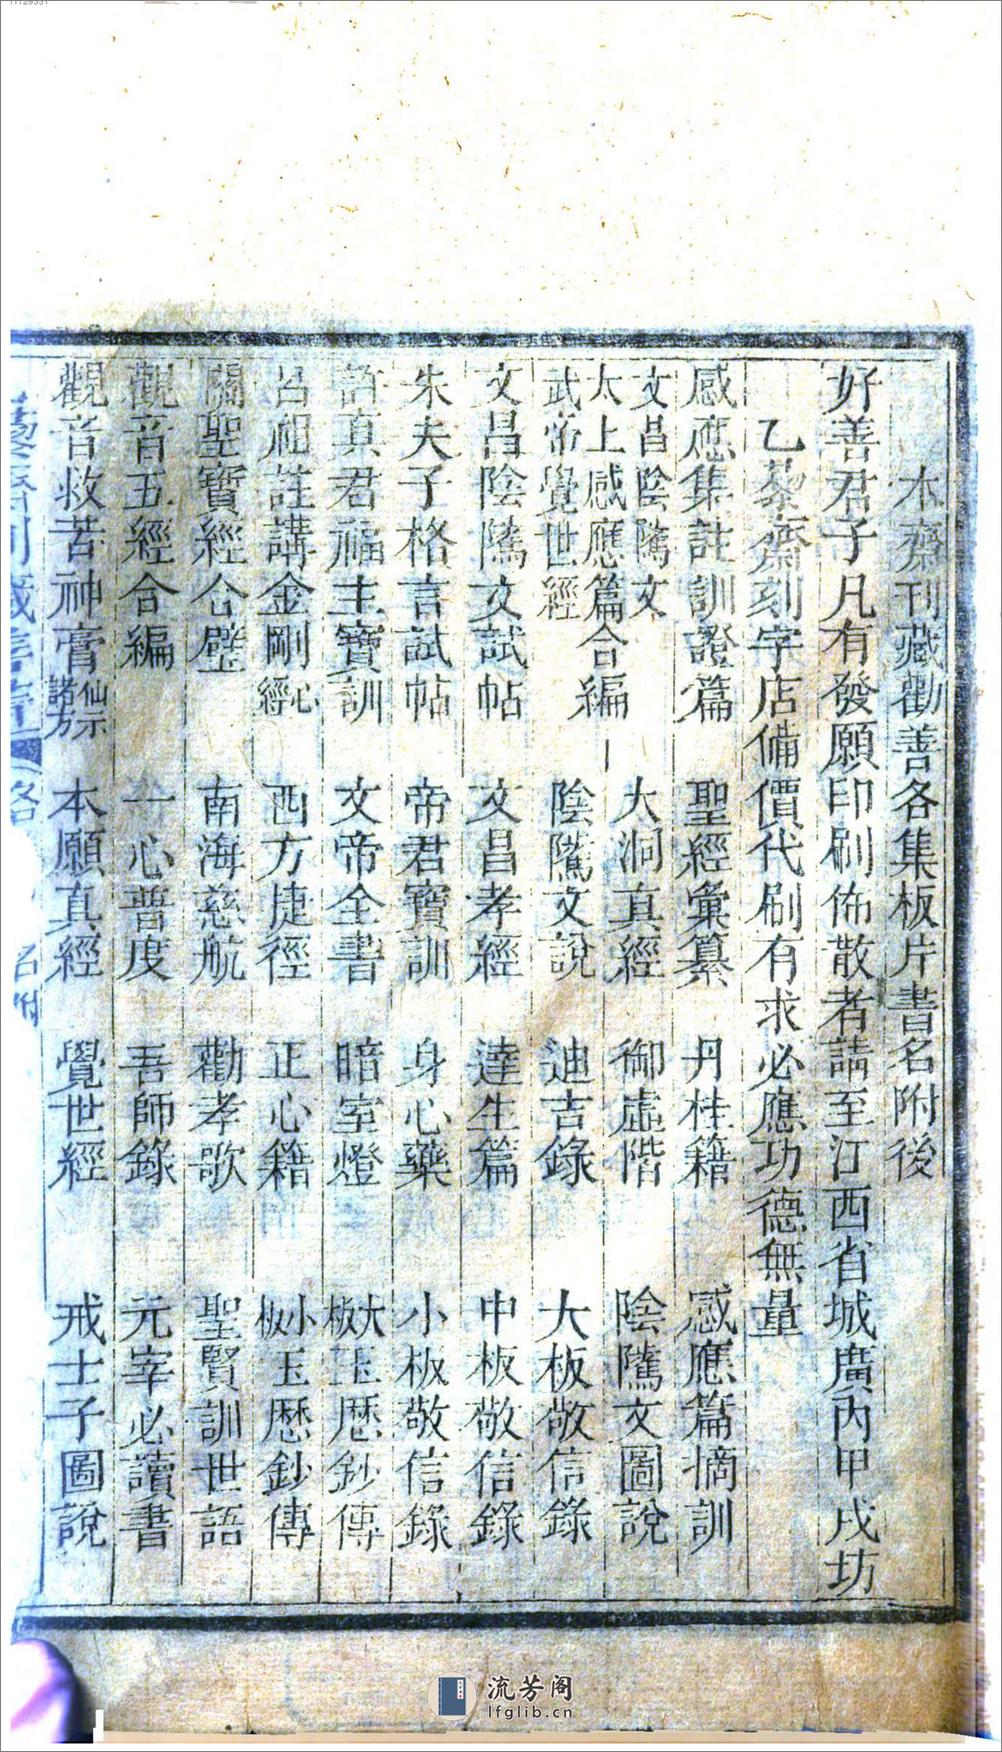 本齋刊藏勸善各集板片書名附後
好善君子凡有發願印刷佈散者請至江西省城廣內甲戌坊
乙藜齋刻字店備價代刷有求必應功德無量
感應集註訓證篇 聖經彙纂 丹桂籍 感應篇摘訓
文昌陰隲文
太上感應篇合編
武帝覺世經
大洞真經 御虛階 陰隲文圖說
陰隲文說 迪吉錄 大板敬信錄
文昌陰隲文試帖 文昌孝經 達生篇 中板敬信錄
朱夫子格言試帖 帝君寶訓 身心藥 小板敬信錄
許真君福主寶訓 文帝全書 暗室燈 大板玉歷鈔傳
呂祖註講金剛心經 西方捷徑 正心籍 小板玉歷鈔傳
關聖寶經合璧 南海慈航 勸孝歌 聖賢訓世語
觀音五經合編 一心普度 吾師錄 元宰必讀書
觀音救苦神膏仙示諸方 本願真經 覺世經 戒士子圖說
流芳阁
lfglib.cn
11129331